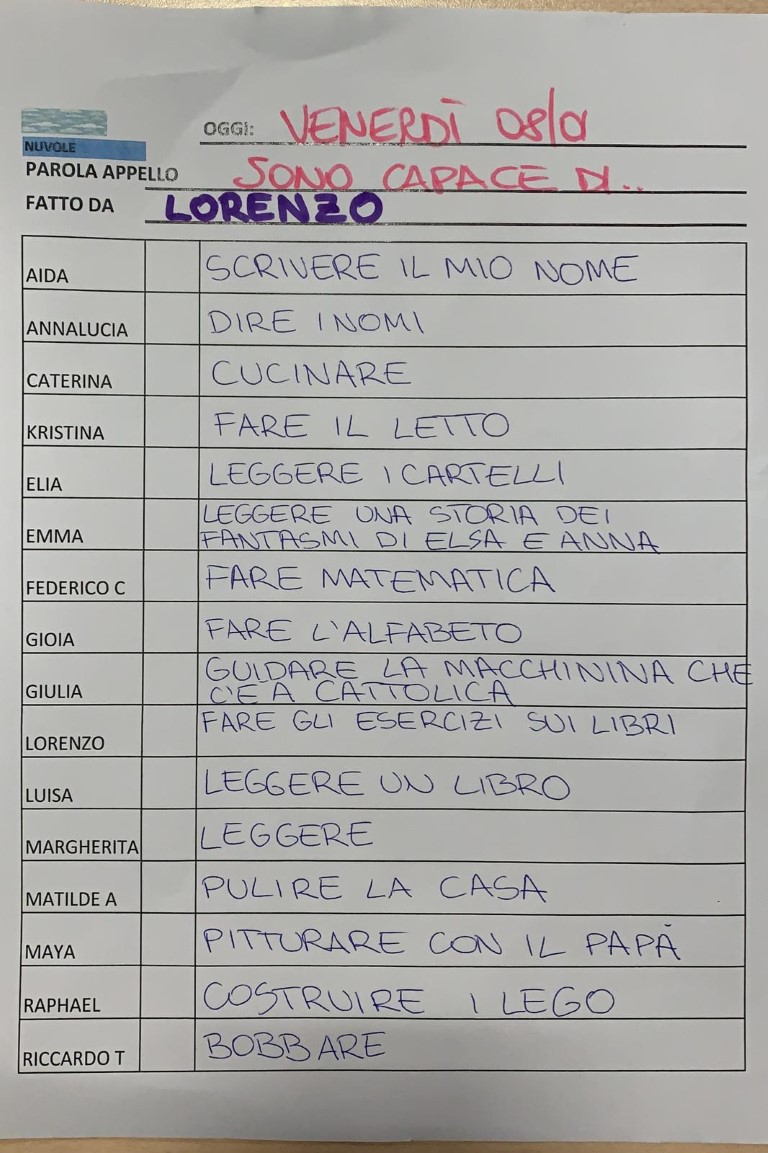 OGGI: VENERDÌ 08/01
NUVOLE
PAROLA APPELLO SONO CAPACE DI..
FATTO DA LORENZO
AIDA SCRIVERE IL MIO NOME
ANNALUCIA DIRE I NOMI
CATERINA CUCINARE
KRISTINA FARE IL LETTO
ELIA LEGGERE I CARTELLI
EMMA LEGGERE UNA STORIA DEI
FANTASMI DI ELSA E ANNA
FEDERICO C FARE MATEMATICA
GIOIA FARE L'ALFABETO
GIULIA GUIDARE LA MACCHININA CHE
C'E A CATTOLICA
LORENZO FARE GLI ESERCIZI SUI LIBRI
LUISA LEGGERE UN LIBRO
MARGHERITA LEGGERE
MATILDE A PULIRE LA CASA
MAYA PITTURARE CON IL PAPÀ
RAPHAEL COSTRUIRE I LEGO
RICCARDO T BOBBARE